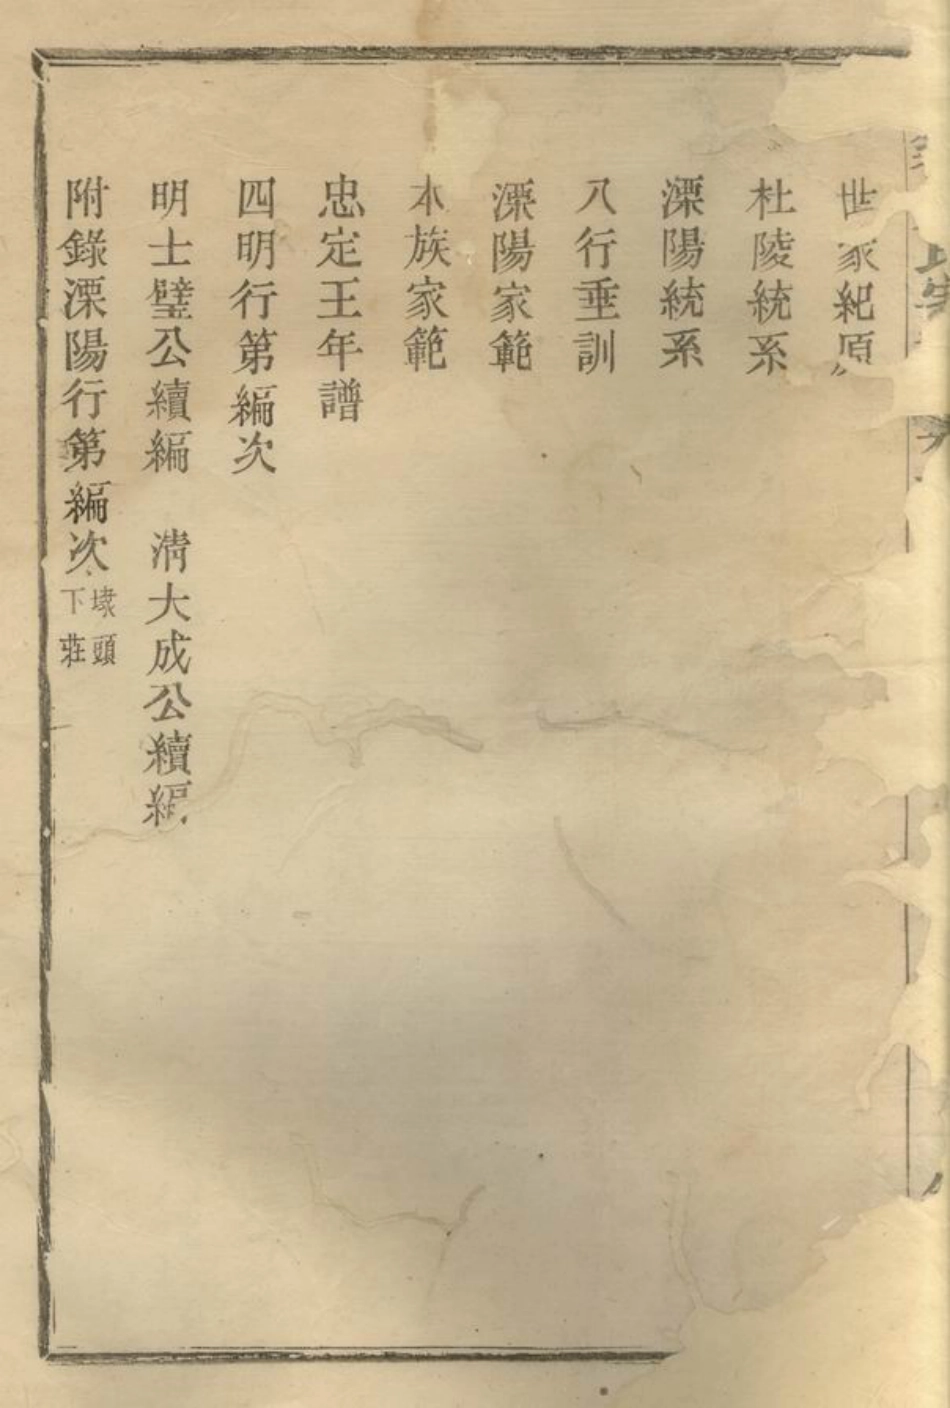 世家紀原
杜陵統系
溧陽統系
八行垂訓
溧陽家範
本族家範
忠定王年譜
四明行第編次
明士璧公續編　清大成公續編
附錄溧陽行第編次 埭頭 下莊